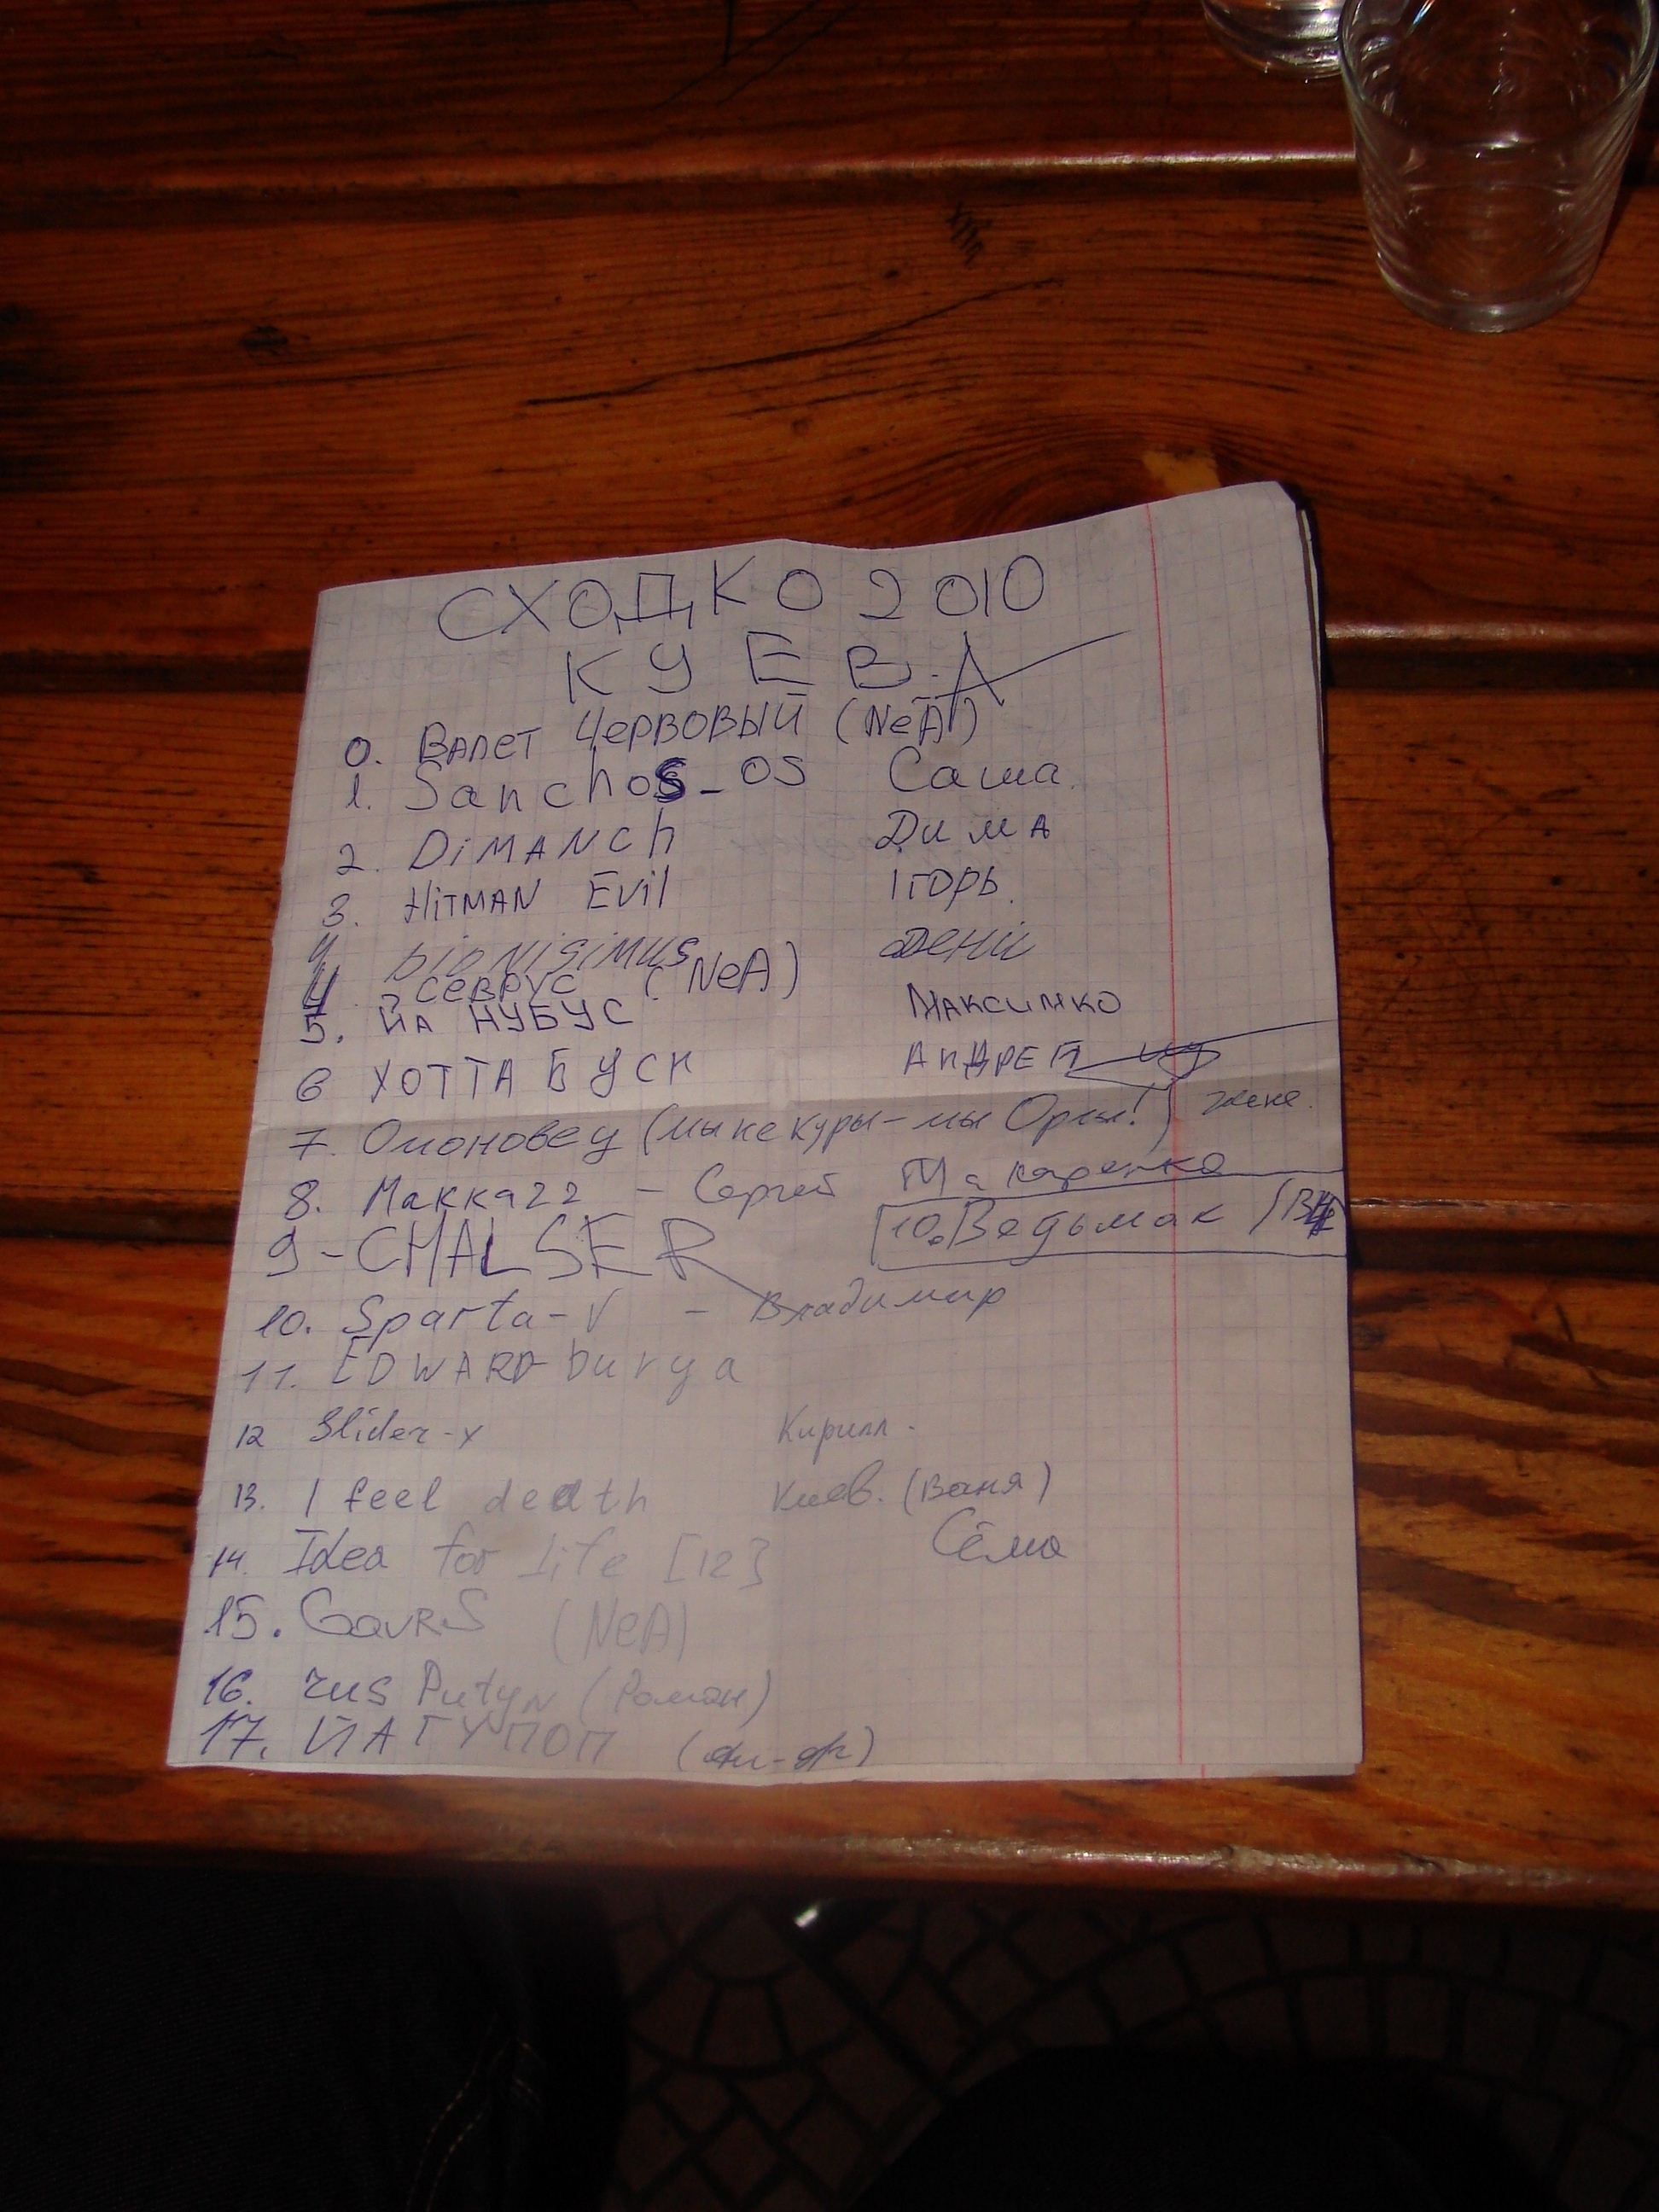 СХОДКО 2010
КУЕВ.А
0. Валет Червовый (NeA)
1. Sanchos_os Саша.
2. DiMANCh Дима
3. HiTMAN Evil Ігорь.
4 bioNisiMus Дени
4 Севрус (NeA)
5. йа нубус Максимко
6 ХОТТАБУСН АНДРЕЙ
7. Омоновец (мы не куры-мы Орлы!)
8. Макка22 - Сергей Макаренко
9 - CHALSER 10. Ведьмак
10. Sparta-V - Владимир
11. EDWARD burya
12 Slider-x Кирилл.
13. I feel death Киев. (Ваня)
14. Idea for life [12] Сёма
15. GavRS (NeA)
16. rus Putyn (Роман)
17. ЙАГУПОП